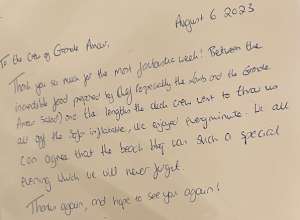 August 6 2023
To the crew of Grande Amour,
Thank you so much for the most fantastic week! Between the
incredible food prepared by Chef (especially the lamb and the Grande
Amour salad) and the lengths the deck crew went to throw us
all off the inflatable, we enjoyed every minute. We all
can agree that the beach bbq was such a special
evening which we will never forget.
Thanks again, and hope to see you again!